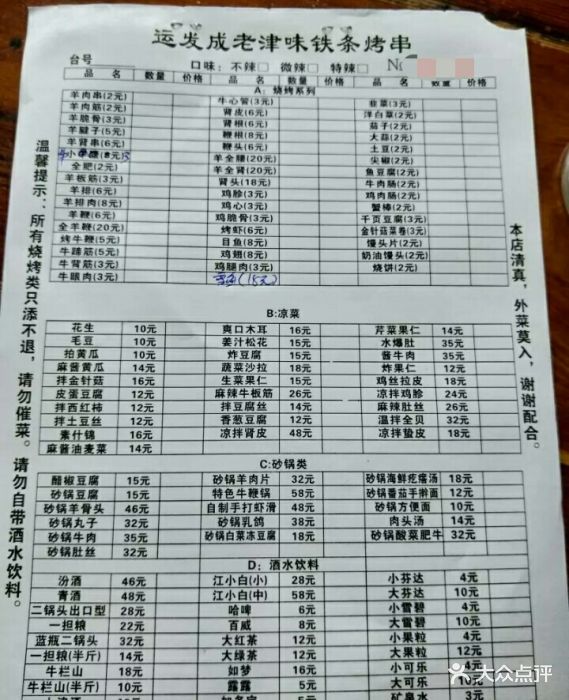 运发成老津味铁条烤串
台号 口味：不辣□ 微辣□ 特辣□ №
品名 数量 价格 品名 数量 价格 品名 数量 价格
A：烧烤系列
羊肉串(2元) 牛心管(3元) 韭菜(3元)
羊肉筋(2元) 肾皮(6元) 洋白菜(2元)
羊脆骨(3元) 肾根(6元) 茄子(2元)
羊腱子(5元) 鞭根(6元) 大蒜(2元)
羊肾串(6元) 鞭头(6元) 土豆(2元)
全肥(2元) 羊全腰(20元) 尖椒(2元)
羊板筋(3元) 羊全肾(20元) 鱼豆腐(2元)
羊排(6元) 肾头(18元) 牛肉肠(2元)
羊排肉(8元) 鸡胗(3元) 鸡肉肠(2元)
羊鞭(6元) 鸡心(3元) 蟹棒(2元)
全羊鞭(20元) 鸡脆骨(3元) 干页豆腐(3元)
烤牛鞭(5元) 烤虾(6元) 金针菇菜卷(3元)
牛蹄筋(5元) 目鱼(8元) 馒头片(2元)
牛背筋(3元) 鸡翅(8元) 奶油馒头(2元)
牛眼肉(3元) 鸡腿肉(3元) 烧饼(2元)
(15元)
B：凉菜
花生 10元 爽口木耳 16元 芹菜果仁 14元
毛豆 10元 姜汁松花 15元 水爆肚 35元
拍黄瓜 10元 炸豆腐 15元 酱牛肉 35元
麻酱黄瓜 14元 蔬菜沙拉 18元 炸果仁 12元
拌金针菇 16元 生菜果仁 15元 鸡丝拉皮 18元
皮蛋豆腐 12元 麻辣牛板筋 26元 凉拌鸡胗 24元
拌西红柿 12元 拌豆腐丝 14元 麻辣肚丝 26元
拌土豆丝 12元 香葱豆腐 12元 温拌全贝 32元
素什锦 16元 凉拌肾皮 48元 凉拌蛰皮 18元
麻酱油麦菜 14元
C：砂锅类
醋椒豆腐 15元 砂锅羊肉片 32元 砂锅海鲜疙瘩汤 18元
砂锅豆腐 15元 特色牛鞭锅 58元 砂锅番茄手擀面 12元
砂锅羊骨头 46元 自制手打虾滑 48元 砂锅方便面 10元
砂锅丸子 32元 砂锅乳鸽 38元 肉头汤 14元
砂锅牛肉 35元 砂锅白菜冻豆腐 18元 砂锅酸菜肥牛 32元
砂锅肚丝 32元
D：酒水饮料
汾酒 46元 江小白(小) 28元 小芬达 4元
青酒 48元 江小白(中) 58元 大芬达 10元
二锅头出口型 28元 哈啤 6元 小雪碧 4元
一担粮 22元 百威 8元 大雪碧 10元
蓝瓶二锅头 32元 大红茶 12元 小果粒 4元
一担粮(半斤) 14元 大绿茶 12元 大果粒 12元
牛栏山 18元 如梦 16元 小可乐 4元
牛栏山(半斤) 10元 露露 5元 大可乐 10元
矿泉水 3元
温馨提示：所有烧烤类只添不退，请勿催菜。请勿自带酒水饮料。
本店清真，外菜莫入，谢谢配合。
大众点评